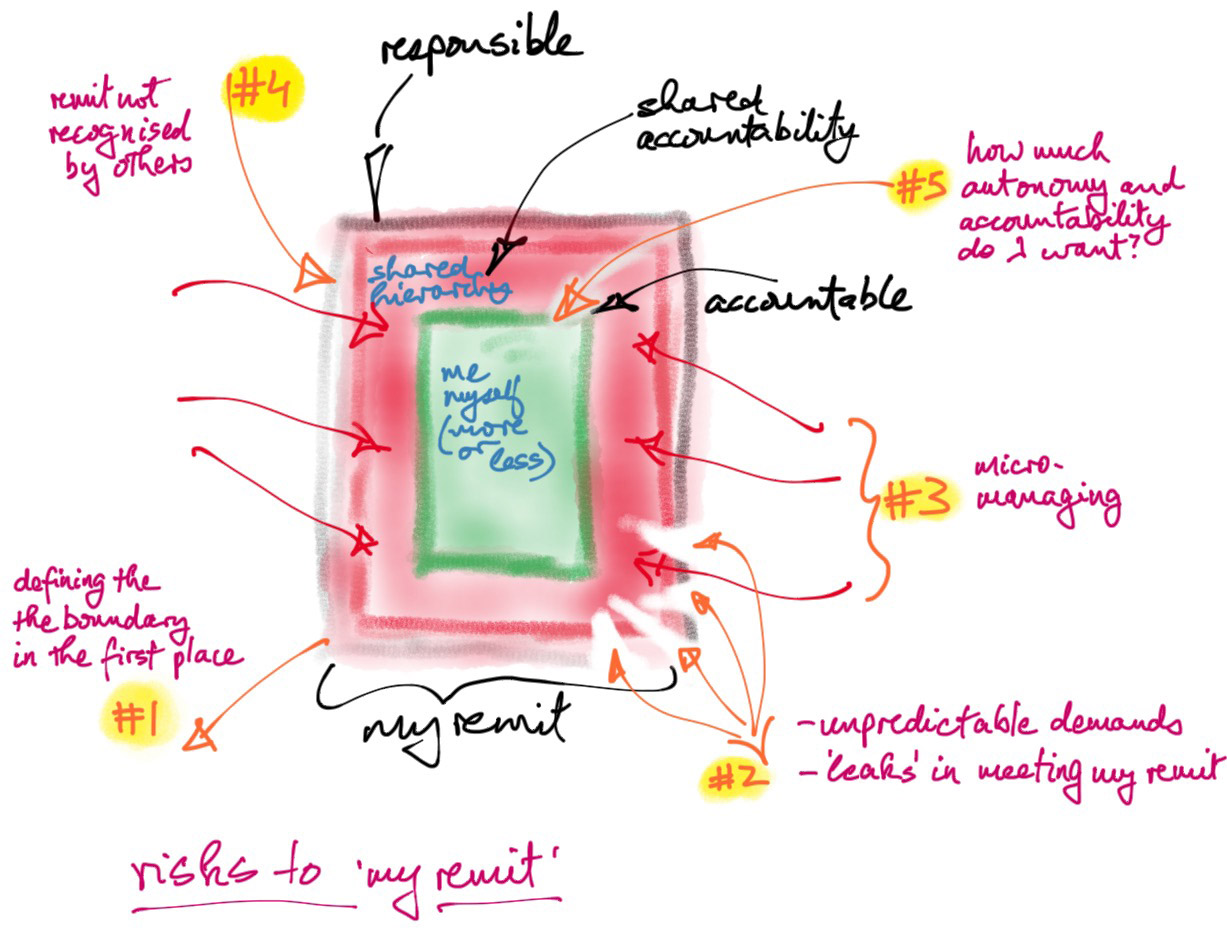 responsible
#4
remit not
recognised
by others
shared
accountability
#5
how much
autonomy and
accountability
do I want?
shared
hierarchy
accountable
me
myself
(more
or
less)
#3
micro-
managing
defining the
the boundary
in the first place
#1
my remit
#2
- unpredictable demands
- 'leaks' in meeting my remit
risks to 'my remit'